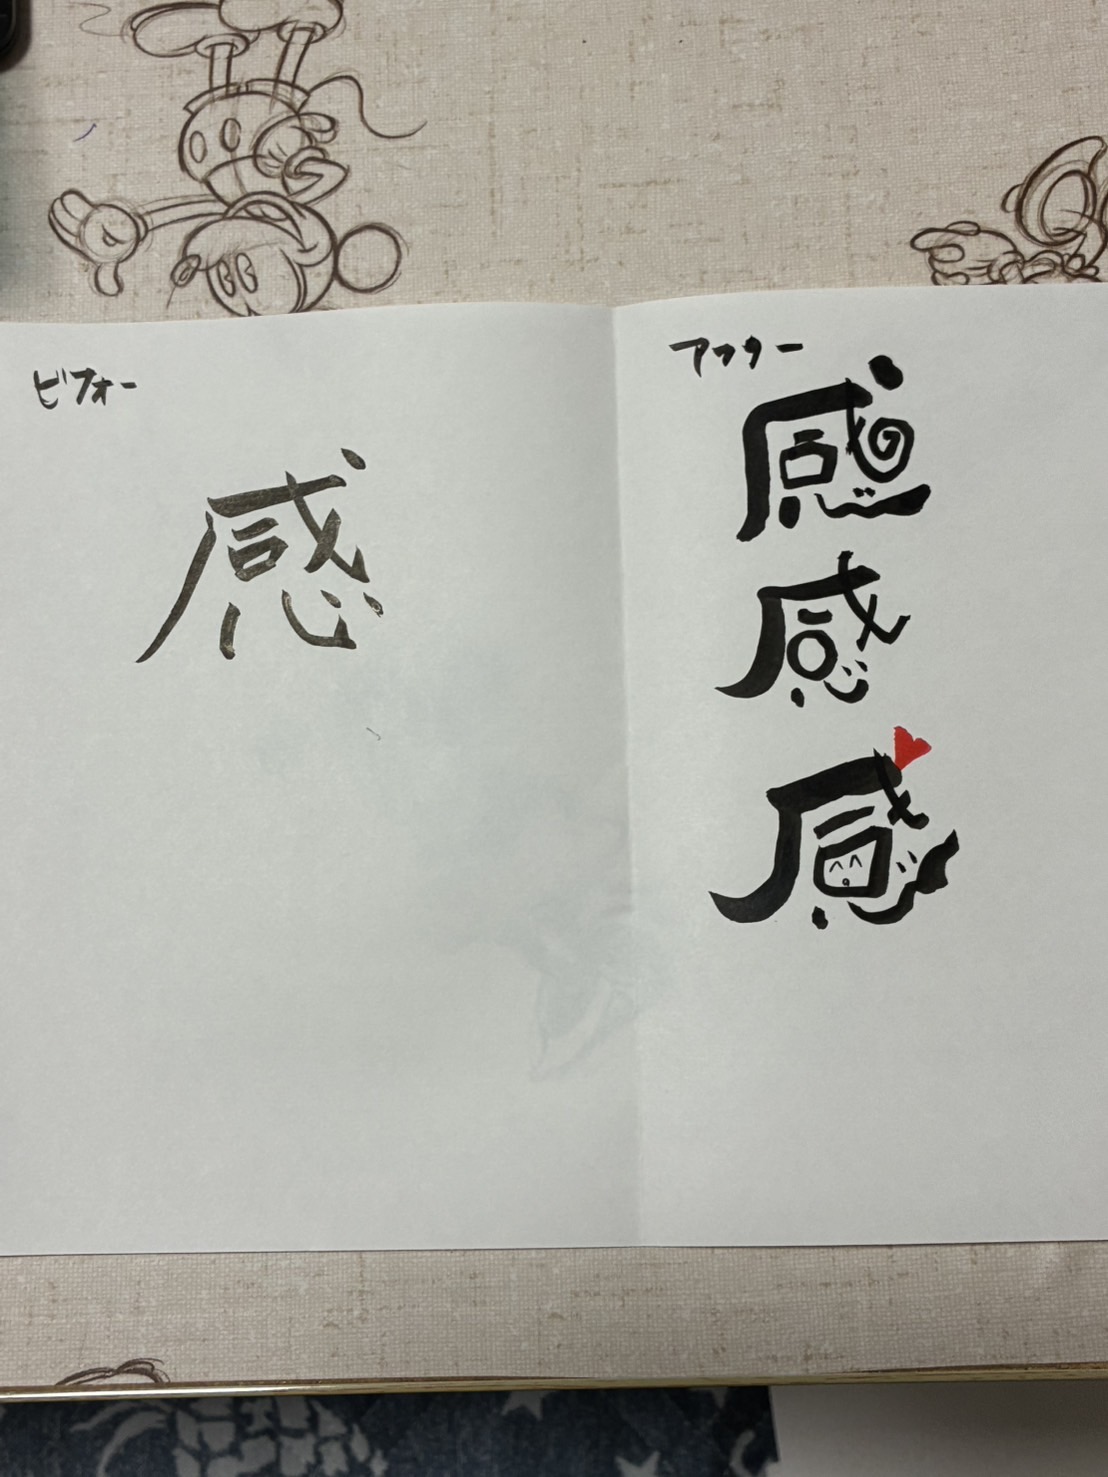 ビフォー
感
アフター
感
感
感